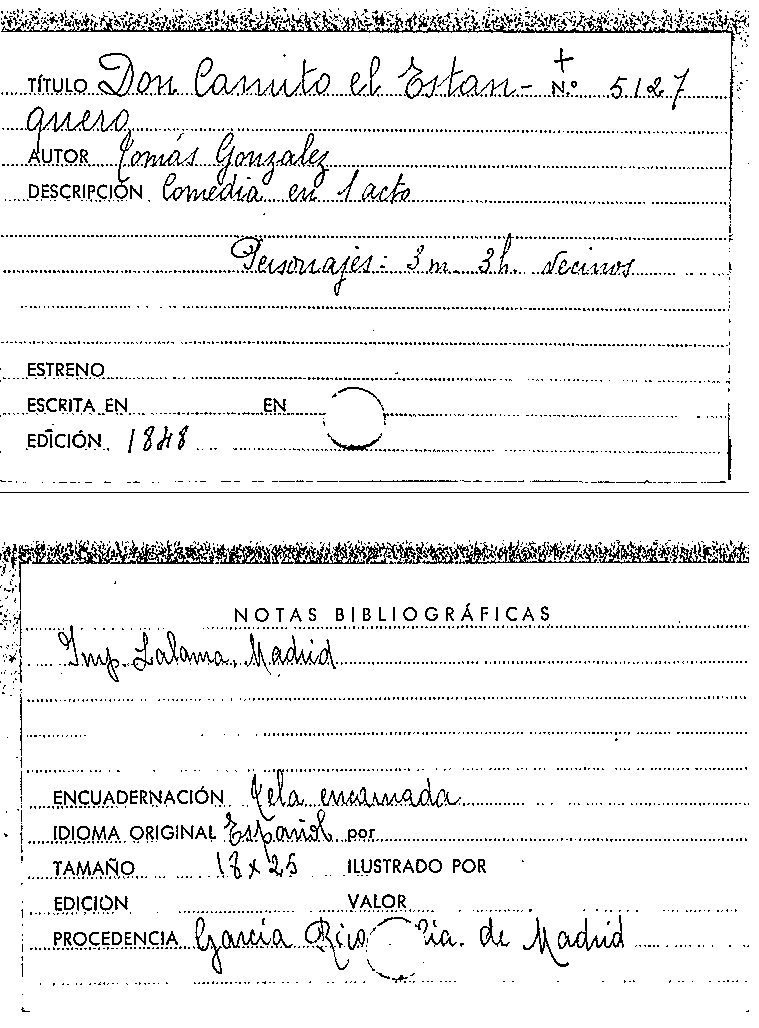 +
TÍTULO Don Canuto el Estan- N.º 5127
quero
AUTOR Tomás Gonzalez
DESCRIPCIÓN Comedia en 1 acto
Personajes: 3 m. 3 h. vecinos
ESTRENO
ESCRITA EN EN
EDICIÓN 1848
NOTAS BIBLIOGRÁFICAS
Imp. Lalama. Madrid
ENCUADERNACIÓN Tela encarnada
IDIOMA ORIGINAL Español por
TAMAÑO 18 x 25 ILUSTRADO POR
EDICIÓN VALOR
PROCEDENCIA García Rico de Madrid